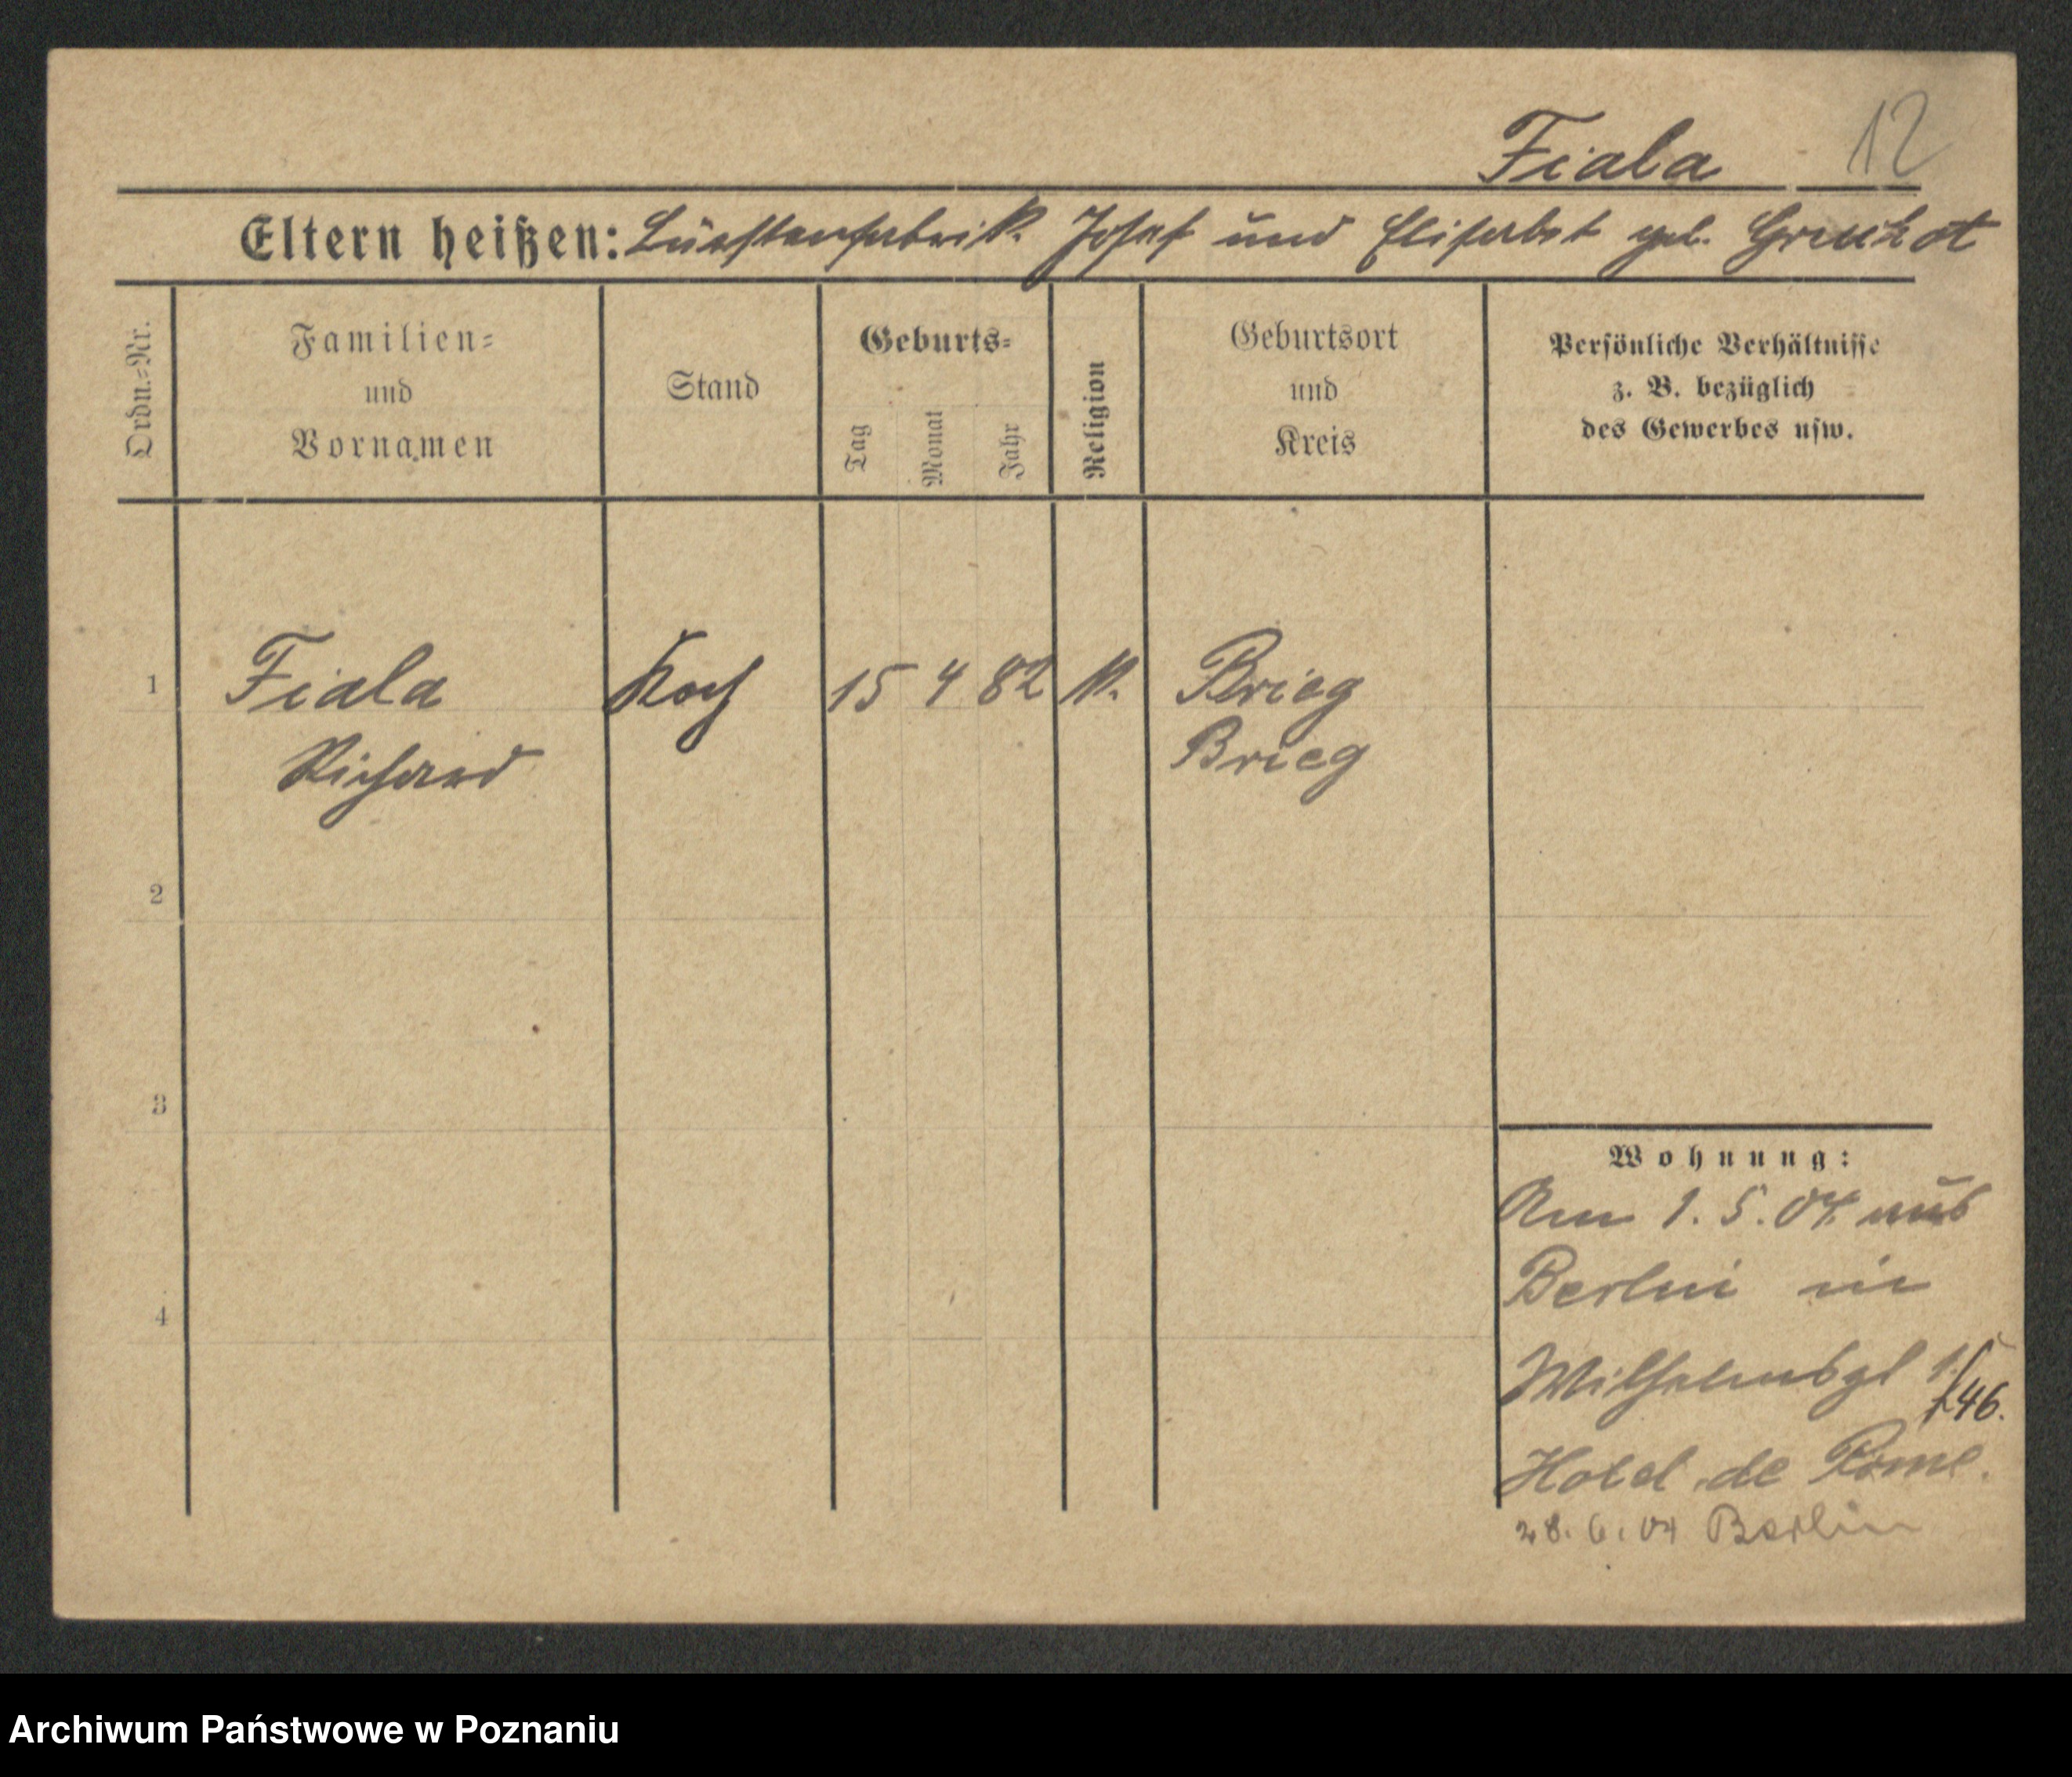 Fiala 12
Eltern heißen: Bürstenfabrik. Josef und Elisabet geb.
Ordn.=Nr.
Familien=
und
Vornamen
Stand
Geburts=
Tag
Monat
Jahr
Religion
Geburtsort
und
Kreis
Persönliche Verhältnisse
z. B. bezüglich
des Gewerbes usw.
1 Fiala Koch 15 4 82 k. Brieg
Richard Brieg
2
3
4
Wohnung:
Am 1. 5. 04 aus
Berlin in
Wilhelmspl 1
/46.
Hotel de Rome.
28. 6. 04 Berlin
Archiwum Państwowe w Poznaniu